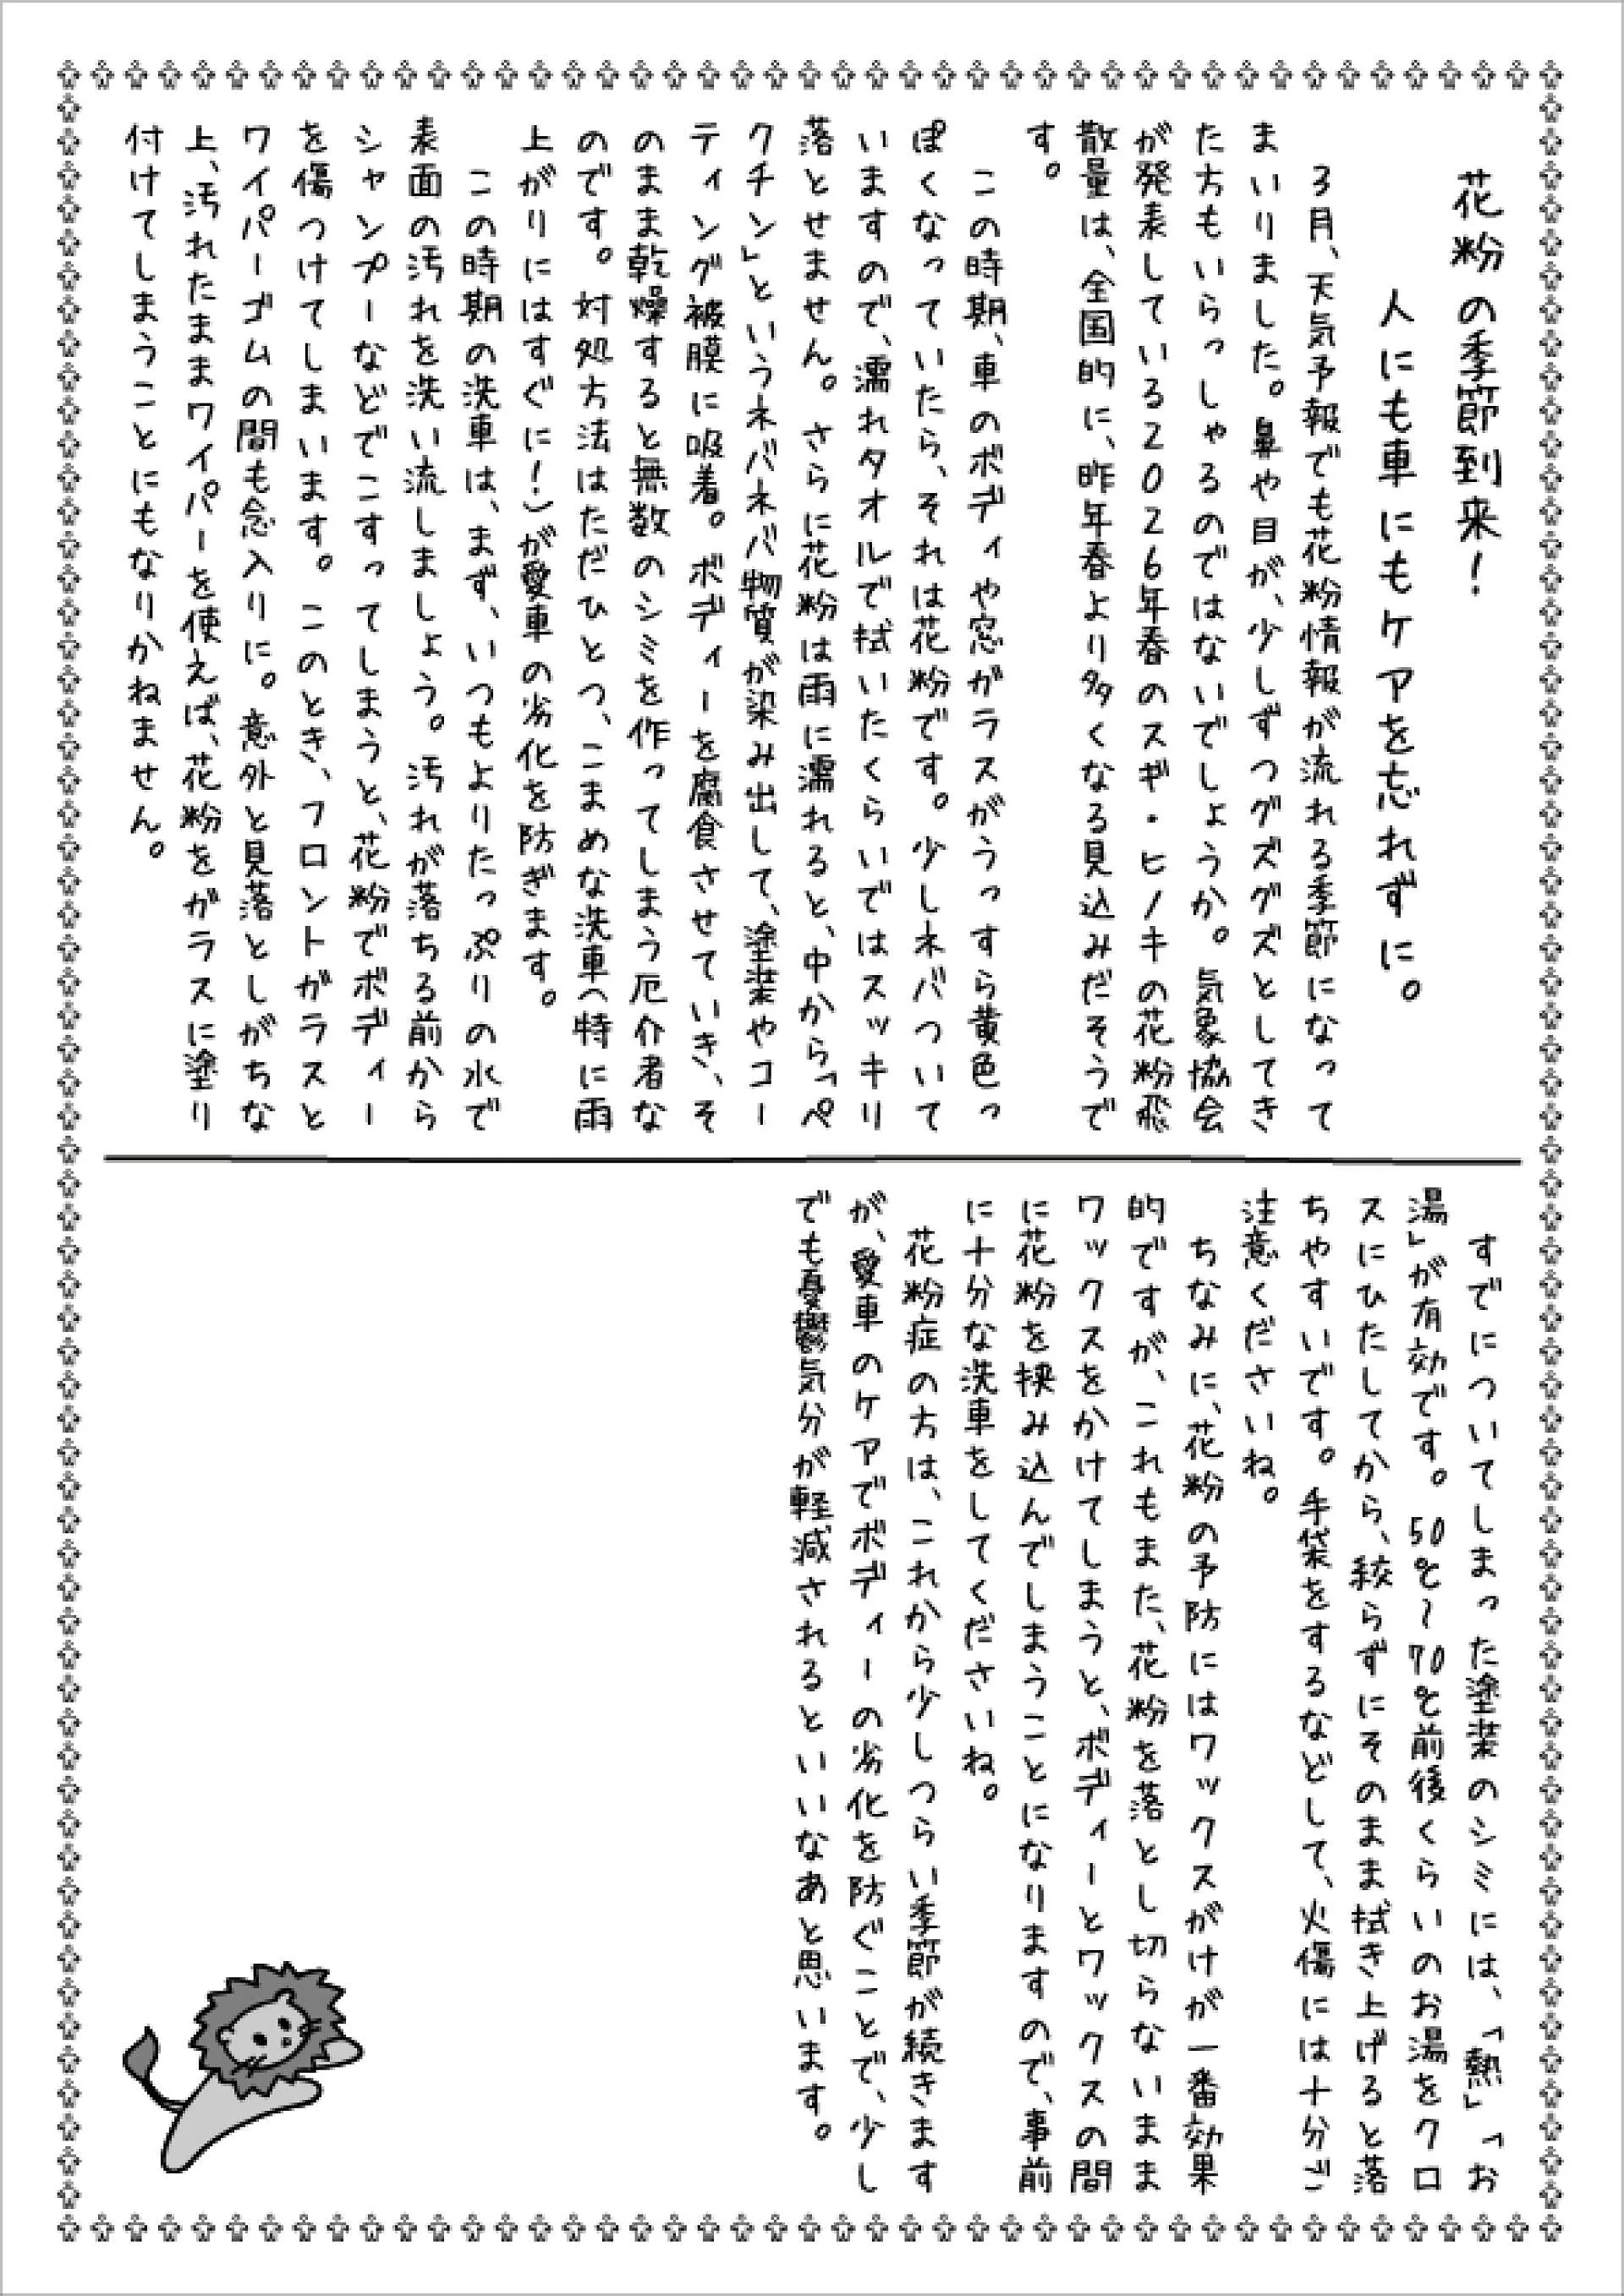 花粉の季節到来！
人にも車にもケアを忘れずに。
３月、天気予報でも花粉情報が流れる季節になって
まいりました。鼻や目が、少しずつグズグズとしてき
た方もいらっしゃるのではないでしょうか。気象協会
が発表している２０２６年春のスギ・ヒノキの花粉飛
散量は、全国的に、昨年春より多くなる見込みだそうで
す。
この時期、車のボディや窓ガラスがうっすら黄色っ
ぽくなっていたら、それは花粉です。少しネバついて
いますので、濡れタオルで拭いたくらいではスッキリ
落とせません。さらに花粉は雨に濡れると、中から「ペ
クチン」というネバネバ物質が染み出して、塗装やコー
ティング被膜に吸着。ボディーを腐食させていき、そ
のまま乾燥すると無数のシミを作ってしまう厄介者な
のです。対処方法はただひとつ、こまめな洗車（特に雨
上がりにはすぐに！）が愛車の劣化を防ぎます。
この時期の洗車は、まず、いつもよりたっぷりの水で
表面の汚れを洗い流しましょう。汚れが落ちる前から
シャンプーなどでこすってしまうと、花粉でボディー
を傷つけてしまいます。このとき、フロントガラスと
ワイパーゴムの間も念入りに。意外と見落としがちな
上、汚れたままワイパーを使えば、花粉をガラスに塗り
付けてしまうことにもなりかねません。
すでについてしまった塗装のシミには、「熱」「お
湯」が有効です。50℃～70℃前後くらいのお湯をクロ
スにひたしてから、絞らずにそのまま拭き上げると落
ちやすいです。手袋をするなどして、火傷には十分ご
注意くださいね。
ちなみに、花粉の予防にはワックスがけが一番効果
的ですが、これもまた、花粉を落とし切らないまま
ワックスをかけてしまうと、ボディーとワックスの間
に花粉を挟み込んでしまうことになりますので、事前
に十分な洗車をしてくださいね。
花粉症の方は、これから少しつらい季節が続きます
が、愛車のケアでボディーの劣化を防ぐことで、少し
でも憂鬱気分が軽減されるといいなあと思います。